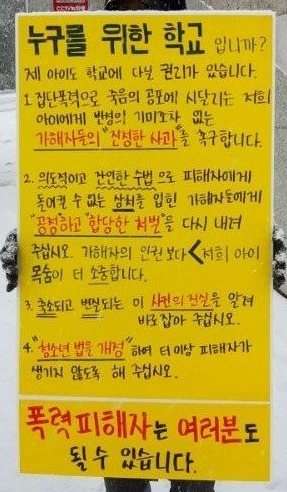 CCTV녹화중
누구를 위한 학교 입니까?
제 아이도 학교에 다닐 권리가 있습니다.
1. 집단폭력으로 죽음의 공포에 시달리는 저희
아이에게 반성의 기미조차 없는
가해자들의 "진정한 사과"를 촉구합니다.
2. 의도적이고 잔인한 수법 으로 피해자에게
돌이킬 수 없는 상처를 입힌 가해자들에게
"공정하고" "합당한 처벌"을 다시 내려
주십시오. 가해자의 인권 보다 < 저희 아이
목숨이 더 소중합니다.
3. 축소되고 변질되는 이 사건의 진실을 알려
바로잡아 주십시오.
4. "청소년 법을 개정" 하여 더 이상 피해자가
생기지 않도록 해 주십시오.
폭력피해자는 여러분도
될 수 있습니다.